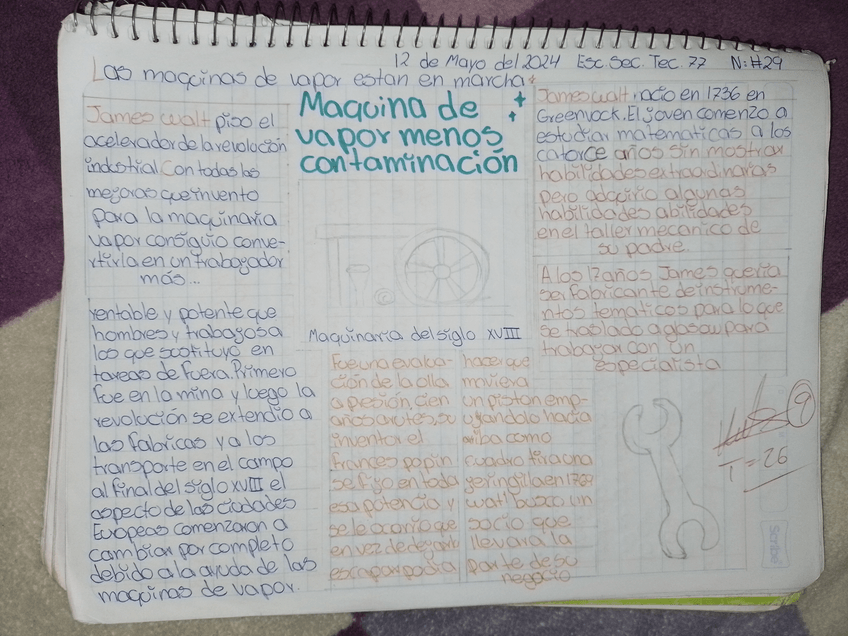 12 de Mayo del 2024 Esc. Sec. Tec. 77 N:#29
Las maqinas de vapor estan en marcha
James Walt piso el
acelerador de la revolución
industrial Con todas las
mejoras que invento
para la maqinaria
vapor consiguio conve-
rtirla en un trabajador
más...
rentable y potente que
hombres y trabajosa
los que sostituyo en
tareas de fuera. Primero
fue en la mina y luego la
revolución se extendio a
las fabricas y a los
transporte en el campo
al final del siglo XVIII el
aspecto de las ciudades
Europeas comenzaron a
cambiar por completo
debido a la ayuda de las
maqinas de vapor.
Maquina de
vapor menos
contaminación
Maquinaria del siglo XVIII
Fue una evalua-
ción de la olla
a pesión, cien
años antes, su
inventor el
frances papin
se fijo en toda
esa potencia y
se le ocurrio que
en vez de dejarla
escapar podia
hacer que
moviera
un piston emp-
ujandolo hacia
arriba como
cuadro tira una
jeringila en 1769
watt busco un
socio que
llevara la
parte de su
negocio
James walt nacio en 1736 en
Greenock. El joven comenzo a
estudiar matematicas a los
catorce años sin mostrar
habilidades extraordinarias
pero adquirio algunas
habilidades abilidades
en el taller mecanico de
su padre.
A los 17 años James queria
ser fabricante de instrume-
ntos tematicos para lo que
se traslado a glasow para
trabajar con un
especialista
9
T=26
Scribe